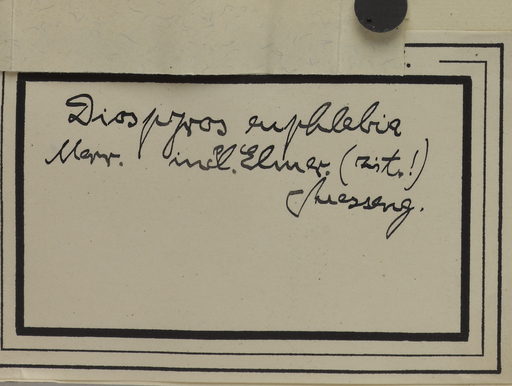 Diospyros euphlebia
Merr. ind. Elmer. (rist.!)
Giesseng.